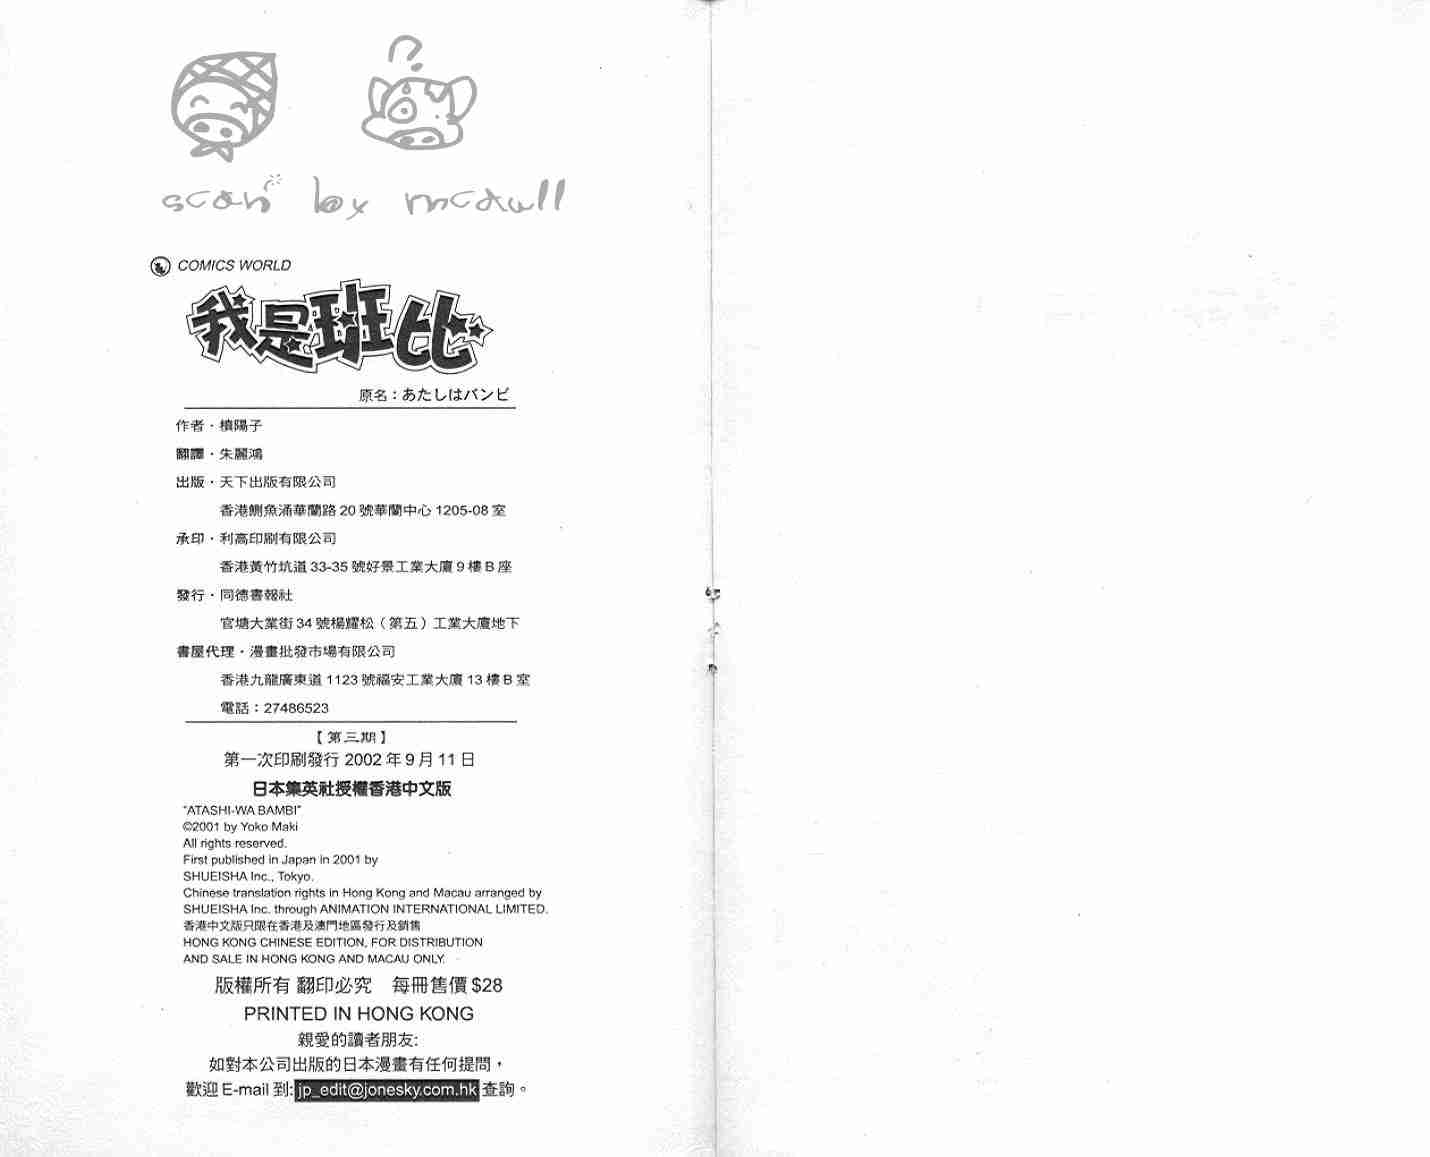 ?
scan by mcdull
COMICS WORLD
我是班比
原名：あたしはバンビ
作者・槙陽子
翻譯・朱麗鴻
出版・天下出版有限公司
香港鰂魚涌華蘭路 20 號華蘭中心 1205-08 室
承印・利高印刷有限公司
香港黃竹坑道 33-35 號好景工業大廈 9 樓 B 座
發行・同德書報社
官塘大業街 34 號楊耀松（第五）工業大廈地下
書屋代理・漫畫批發市場有限公司
香港九龍廣東道 1123 號福安工業大廈 13 樓 B 室
電話：27486523
【第三期】
第一次印刷發行 2002 年 9 月 11 日
日本集英社授權香港中文版
"ATASHI-WA BAMBI"
©2001 by Yoko Maki
All rights reserved.
First published in Japan in 2001 by
SHUEISHA Inc., Tokyo.
Chinese translation rights in Hong Kong and Macau arranged by
SHUEISHA Inc. through ANIMATION INTERNATIONAL LIMITED.
香港中文版只限在香港及澳門地區發行及銷售
HONG KONG CHINESE EDITION, FOR DISTRIBUTION
AND SALE IN HONG KONG AND MACAU ONLY.
版權所有 翻印必究　每冊售價 $28
PRINTED IN HONG KONG
親愛的讀者朋友:
如對本公司出版的日本漫畫有任何提問，
歡迎 E-mail 到: jp_edit@jonesky.com.hk 查詢。